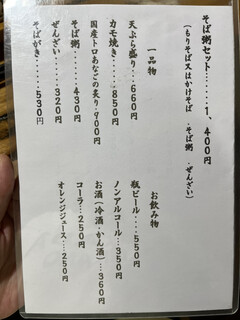 そば粥セット……1,400円
(もりそば又はかけそば・そば粥・ぜんざい)
一品物
天ぷら盛り…660円
カモ焼き……850円
国産トロあなごの炙り・900円
そば粥……430円
ぜんざい……320円
そばがき……530円
お飲み物
瓶ビール……550円
ノンアルコール…350円
お酒(冷酒・かん酒)…360円
コーラ……250円
オレンジジュース……250円